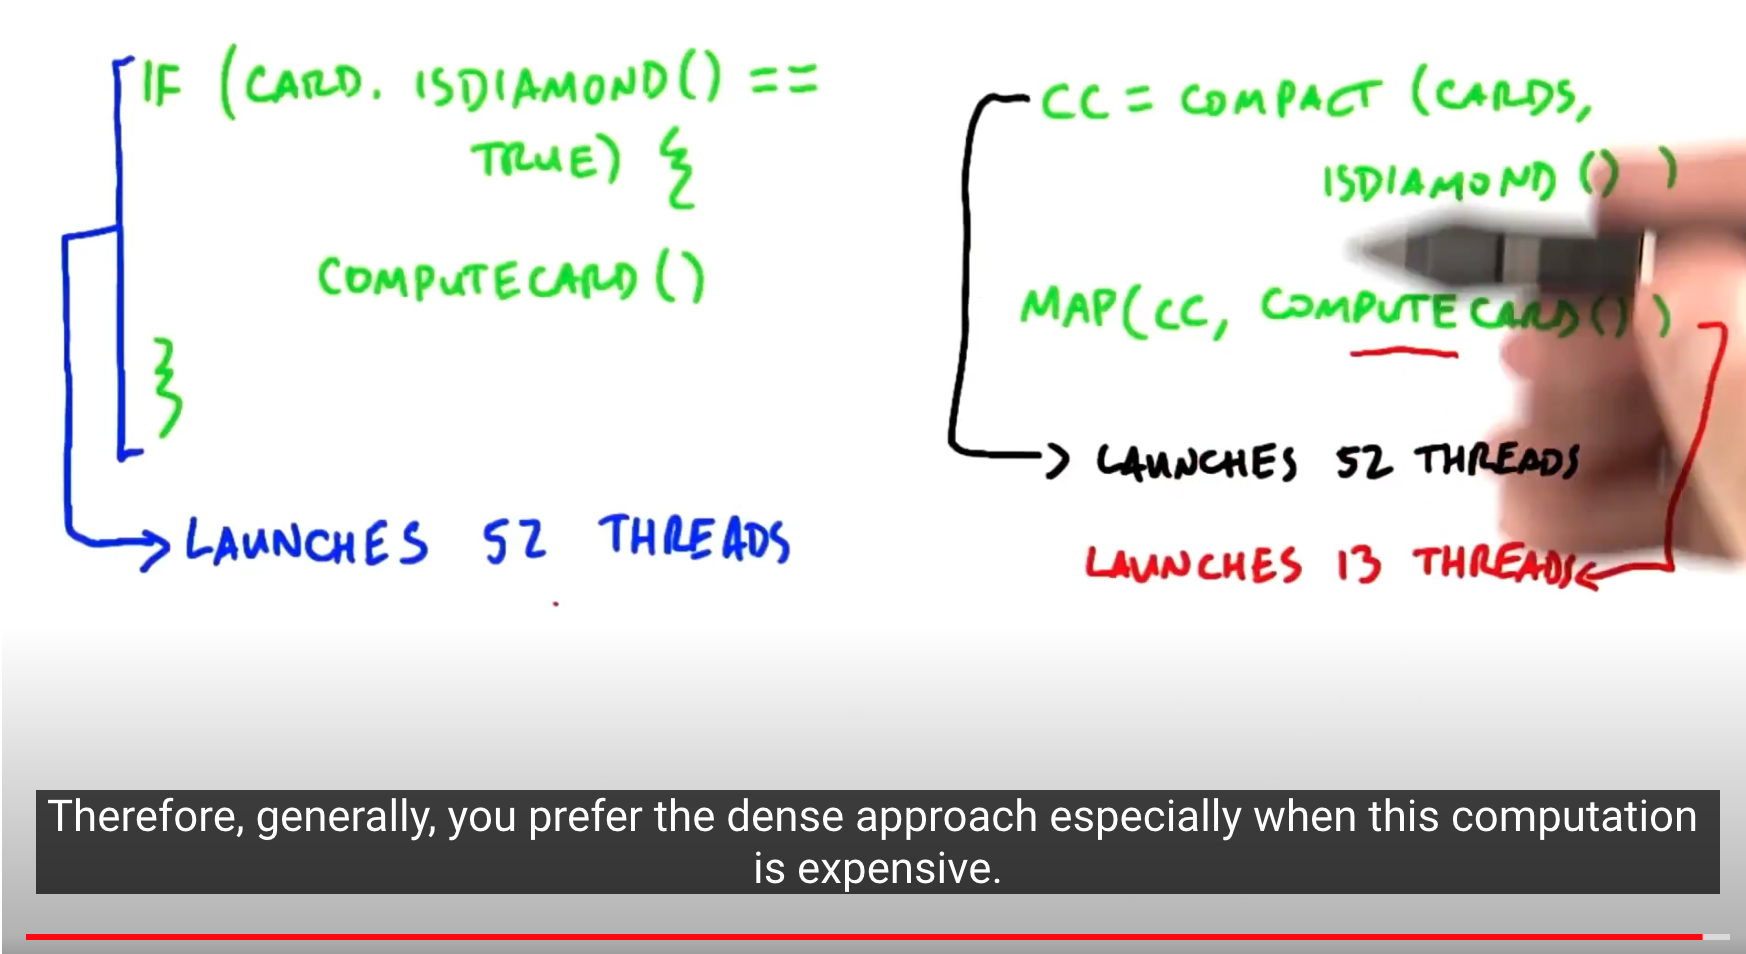 IF (CARD. ISDIAMOND() ==
TRUE) {
COMPUTECARD()
}
LAUNCHES 52 THREADS
CC = COMPACT (CARDS,
ISDIAMOND () )
MAP(CC, COMPUTECARD())
LAUNCHES 52 THREADS
LAUNCHES 13 THREADS
Therefore, generally, you prefer the dense approach especially when this computation
is expensive.